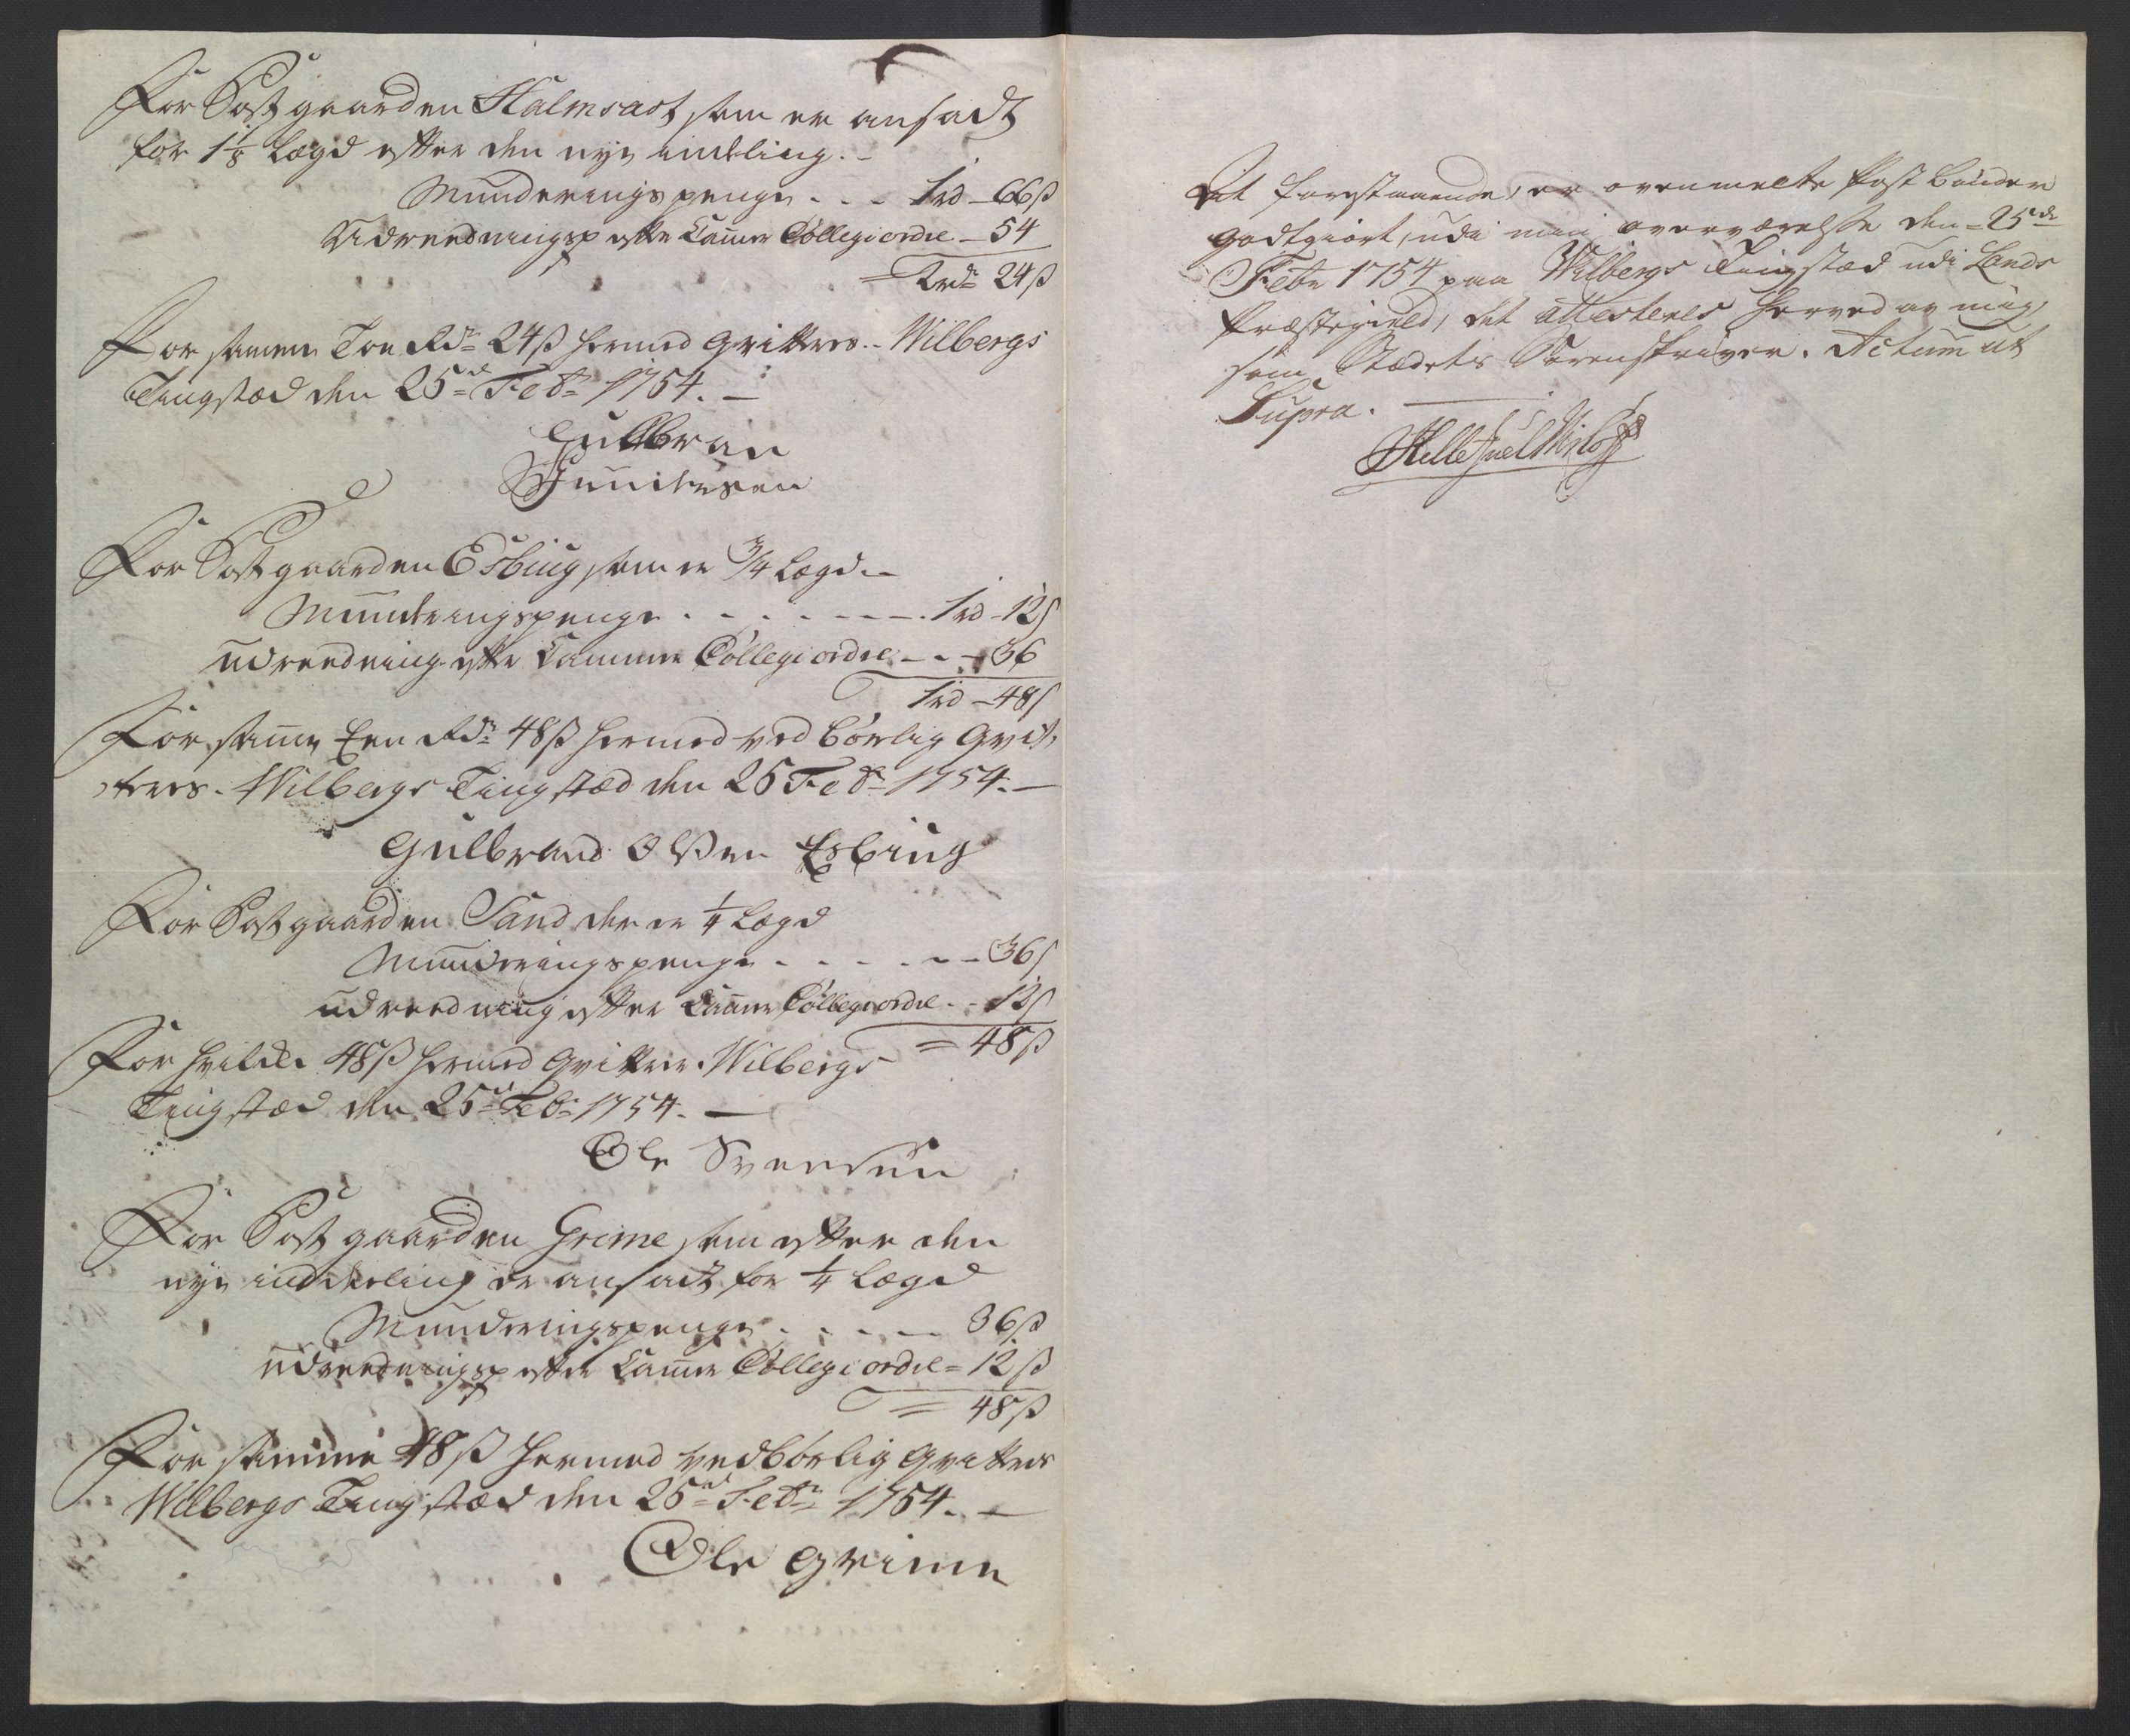 For Postgaarden Halmrast som er ansadt
for 1 1/8 Lægd efter den nye indeling. –
Munderings penge . . . 1 rd – 66 ß
Udreednings p efter Camer Collegi ordre – 54
= 2 rd 24 ß
For samme Toe Rdr 24 ß hermed qvitteres. Wilbergs
Tingstæd den 25d Febr 1754. –
Gulbran
For Postgaarden Esbiug som er 3/4 Lægd –
Munderingspenge . . . . 1 rd – 12 ß
udreedning efter Cammer Collegi ordre – – 36
1 rd – 48 ß
For samme Een Rdr 48 ß hermed ved børlig Qvit,
teres. Wilbergs Tingstæd den 25 Febr 1754. –
Gulbrand Olsen Esbiug
For Postgaarden Sand der er 1/4 Lægd
Munderingspenge . . . . – 36 ß
udreedning efter Camer Collegi ordre . – 12 ß
= 48 ß
For hvilcke 48 ß hermed Qvitteres. Wilbergs
Tingstæd den 25d Febr 1754. –
Ole Svensen
For Postgaarden Grime som efter den
nye inddeeling er ansadt for 1/4 Lægd
Munderingspenge . . . . 36 ß
udreednings p efter Camer Collegi ordre = 12 ß
= 48 ß
For samme 48 ß hermed vedbørlig Qvitteres
Wilbergs Tingstæd den 25d Febr 1754. –
Ole Grime
At forestaaende, er ovenmelte Post bønder
godtgiort, udi min overværelse den 25de
Febr 1754 paa Wilbergs Tingstæd udi Lands
Præstegield, det attesteres herved av mig,
som Stædets Sorenskriver. Actum ut
Supra.